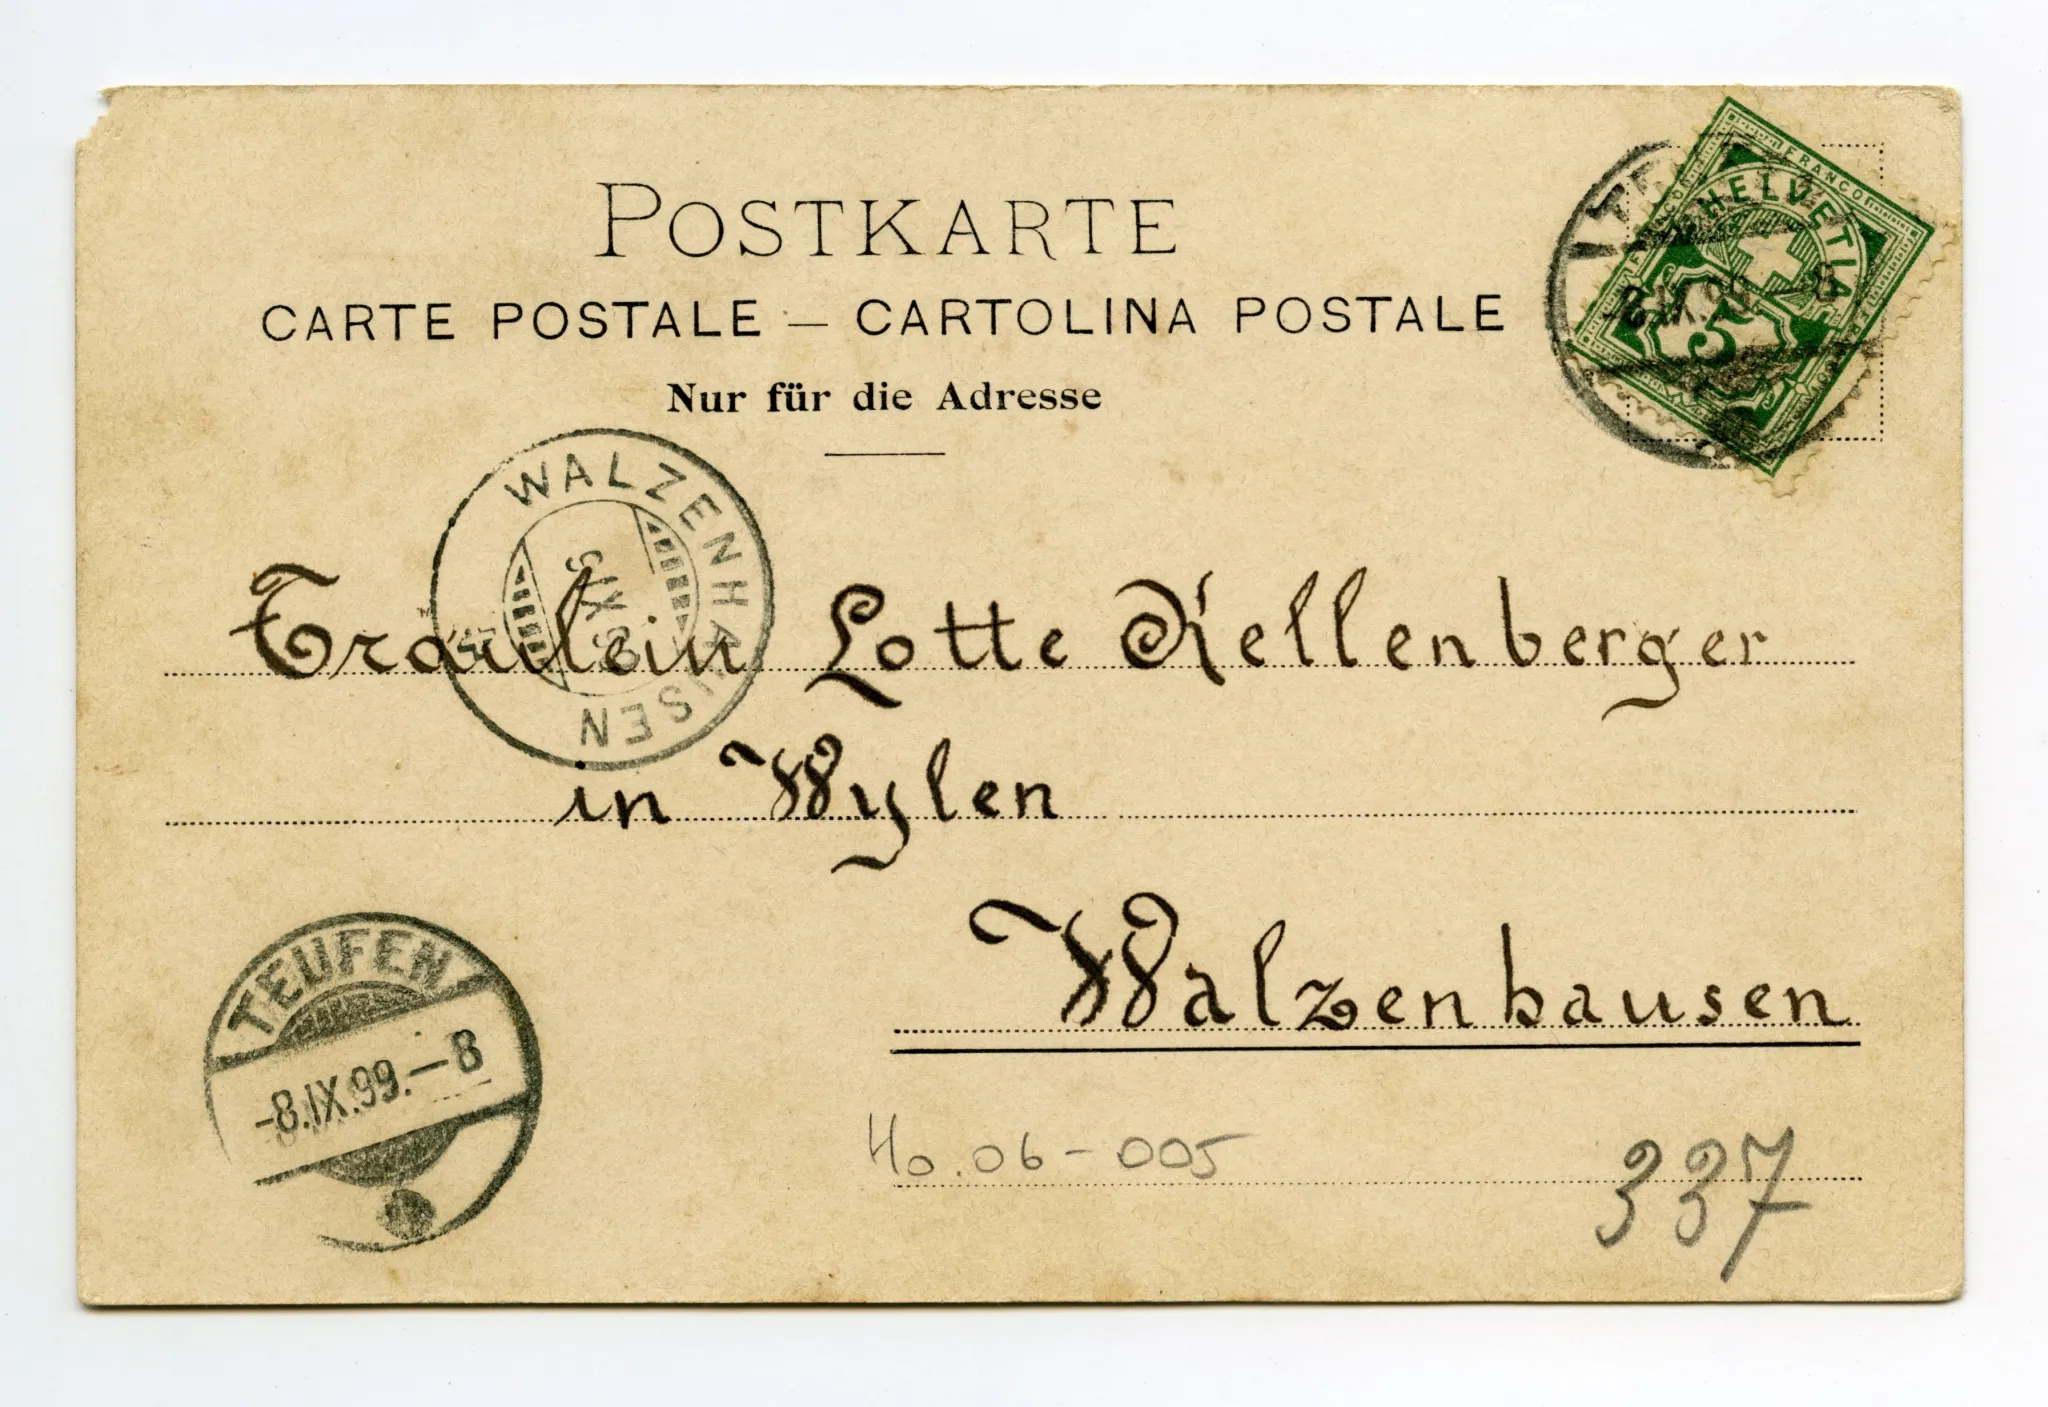 POSTKARTE
CARTE POSTALE — CARTOLINA POSTALE
Nur für die Adresse
FRANCO
HELVETIA
5
-8.IX.99.-8
WALZENHAUSEN
9.IX
Fräulein Lotte Kellenberger
in Wylen
Walzenhausen
TEUFEN
-8.IX.99.-8
Ho.06-005
337